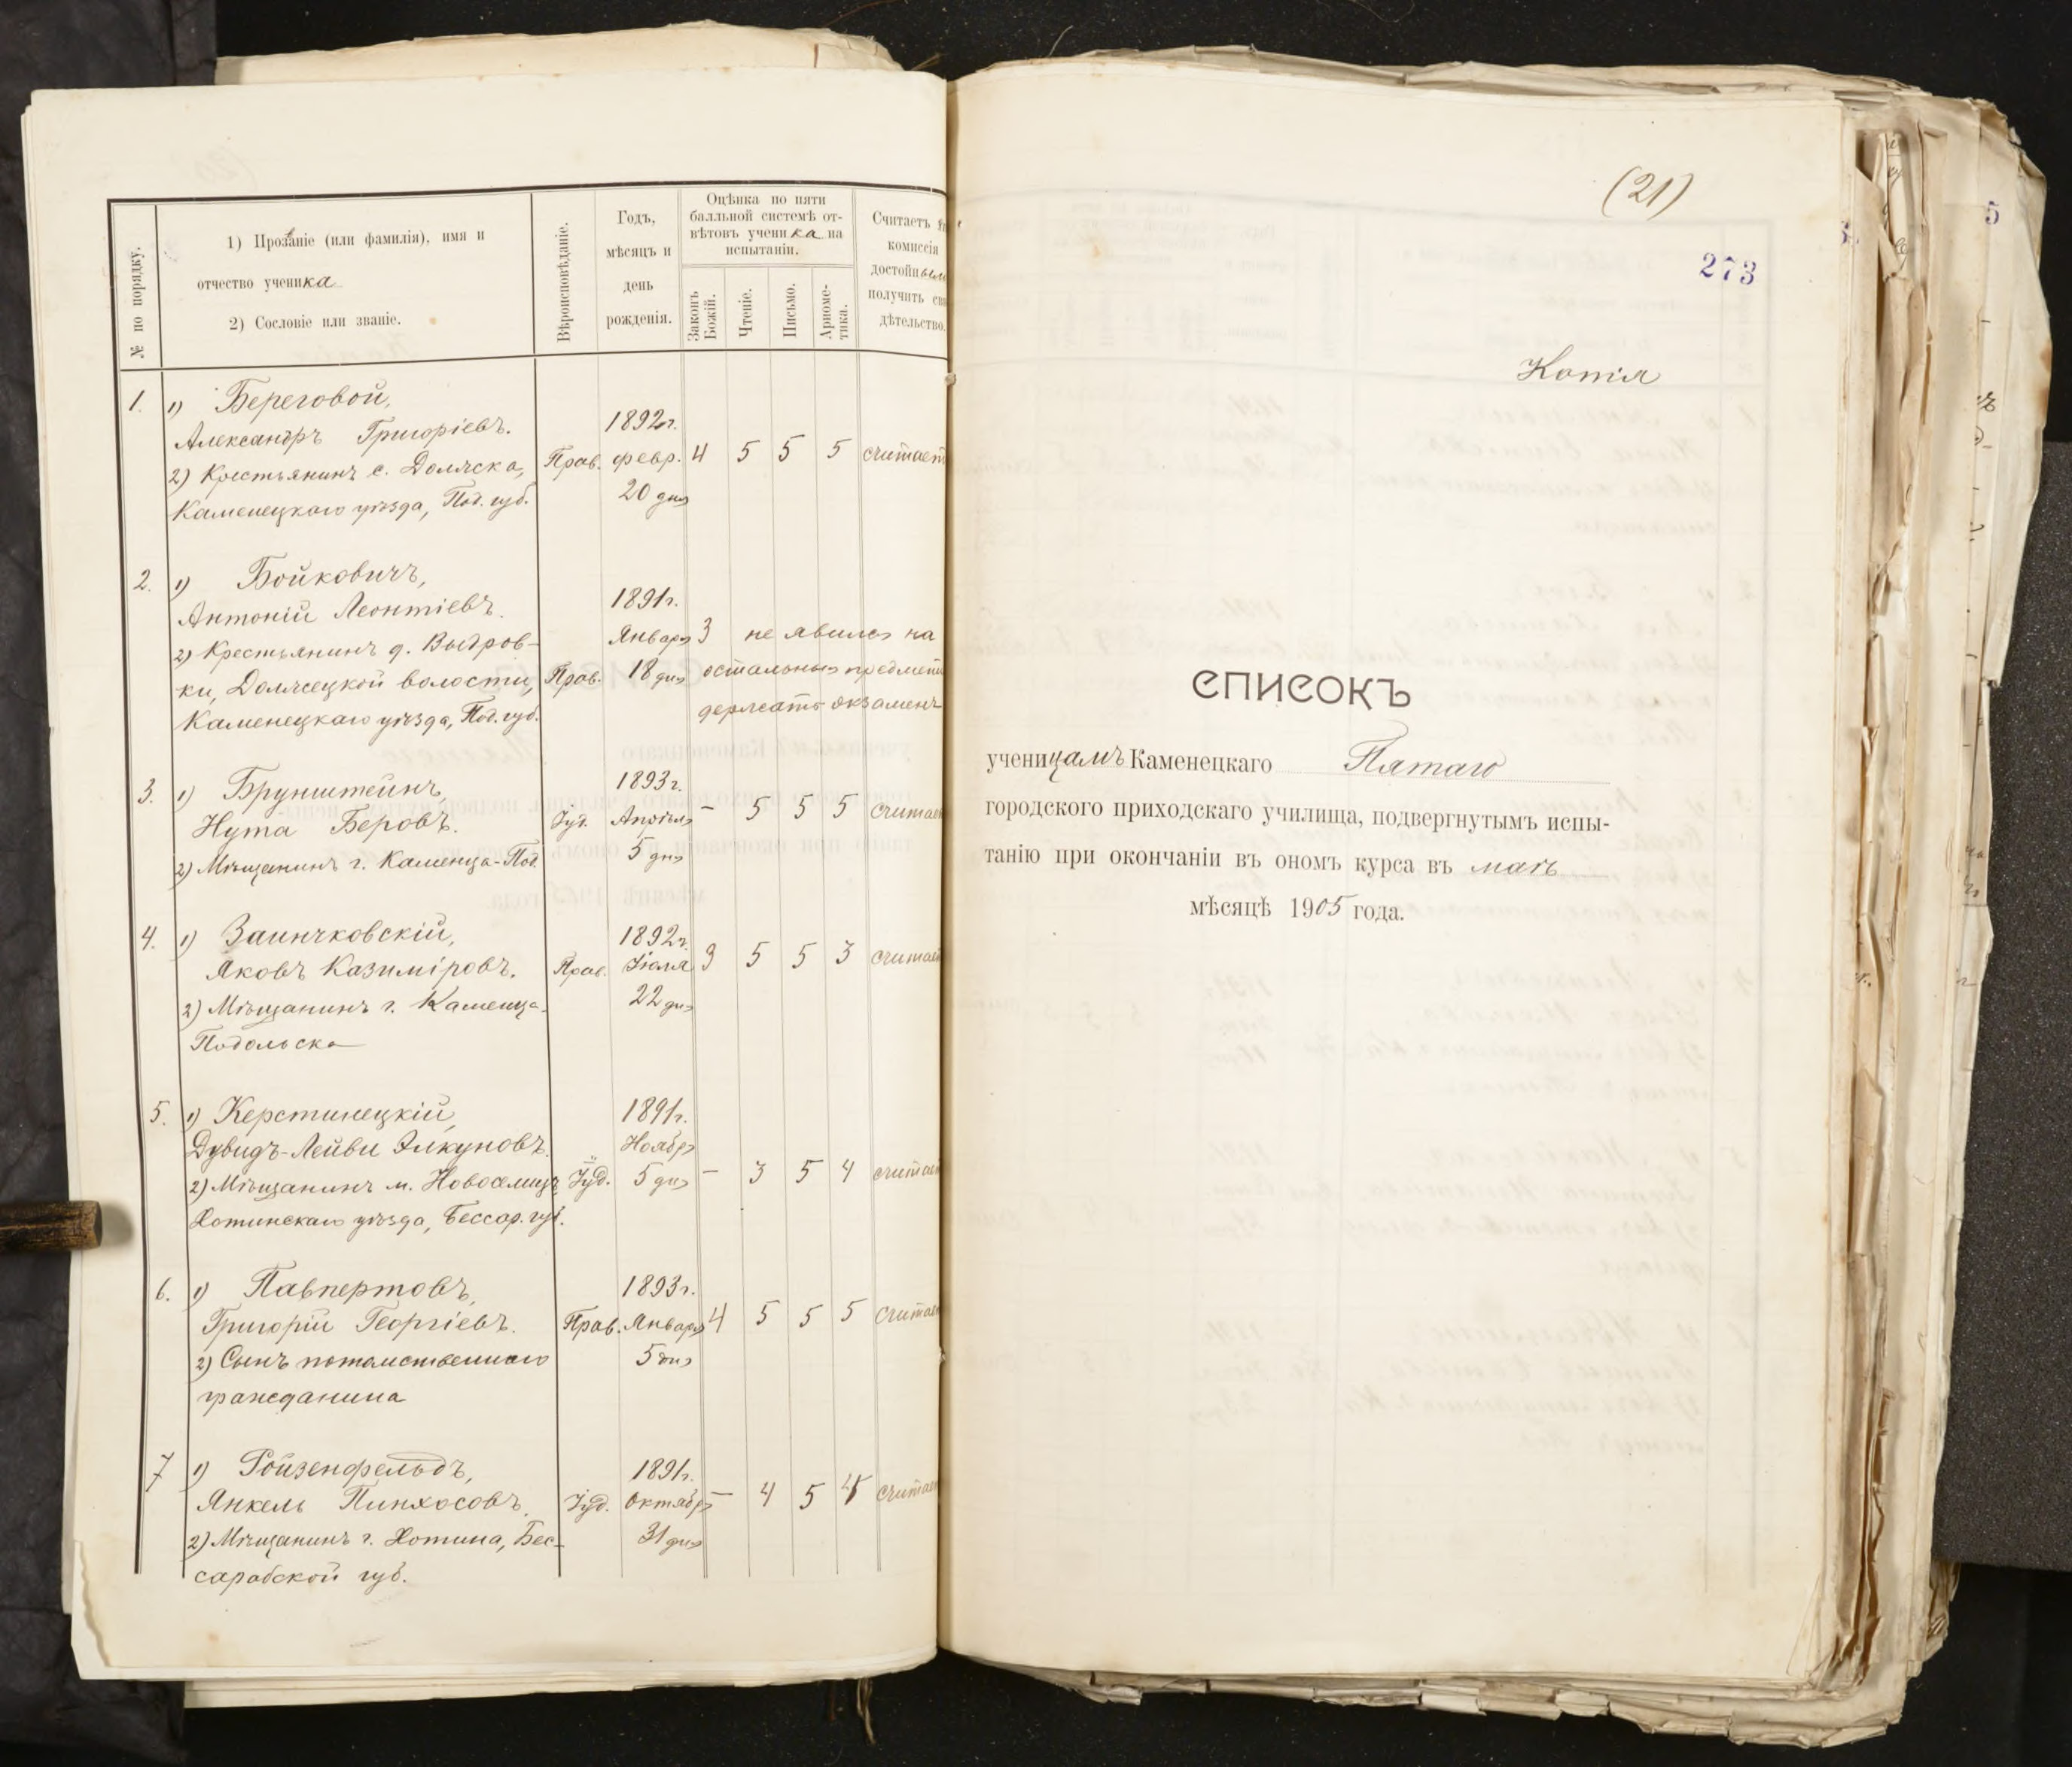 № по порядку.
1) Прозваніе (или фамилія), имя и
отчество ученика
2) Сословіе или званіе.
Вѣроисповѣданіе.
Годъ,
мѣсяцъ и
день
рожденія.
Оцѣнка по пяти
балльной системѣ от-
вѣтовъ ученика на
испытаніи.
Законъ
Божій.
Чтеніе.
Письмо.
Ариѳме-
тика.
Считаетъ
комиссія
достойным
получить сви
дѣтельство.
1. 1) Береговой,
Александръ Григоріевъ.
2) Крестьянинъ с. Должска,
Каменецкаго уѣзда, Под. губ.
Прав.
1892г.
февр.
20 дня
4 5 5 5 считает
2. 1) Бойковичъ,
Антоній Леонтіевъ.
2) Крестьянинъ д. Выдров-
ки, Должецкой волости,
Каменецкаго уѣзда, Под. губ.
Прав.
1891г.
Января
18 дня
3 не явился на
остальныя предметы
держать экзаменъ
3. 1) Брунштейнъ,
Нута Беровъ.
2) Мѣщанинъ г. Каменца-Под.
Іуд.
1893г.
Апрѣля
5 дня
- 5 5 5 считает
4. 1) Заинчковскій,
Яковъ Казиміровъ.
2) Мѣщанинъ г. Каменца-
Подольска
Прав.
1892г.
Іюля
22 дня
3 5 5 3 считает
5. 1) Керстинецкій,
Дувидъ-Лейви Элкуновъ.
2) Мѣщанинъ м. Новоселицъ,
Хотинскаго уѣзда, Бессар. губ.
Іуд.
1891г.
Ноября
5 дня
- 3 5 4 считает
6. 1) Павпертовъ,
Григорій Георгіевъ.
2) Сынъ потомственнаго
гражданина
Прав.
1893г.
Января
5 дня
4 5 5 5 считает
7 1) Ройзенфельдъ,
Янкель Пинхосовъ.
2) Мѣщанинъ г. Хотина, Бес-
сарабской губ.
Іуд.
1891г.
Октября
31 дня
- 4 5 4 считает
(21)
273
Копія
СПИСОКЪ
ученицамъ Каменецкаго Пятаго
городского приходскаго училища, подвергнутымъ испы-
танію при окончаніи въ ономъ курса въ маѣ
мѣсяцѣ 1905 года.
5